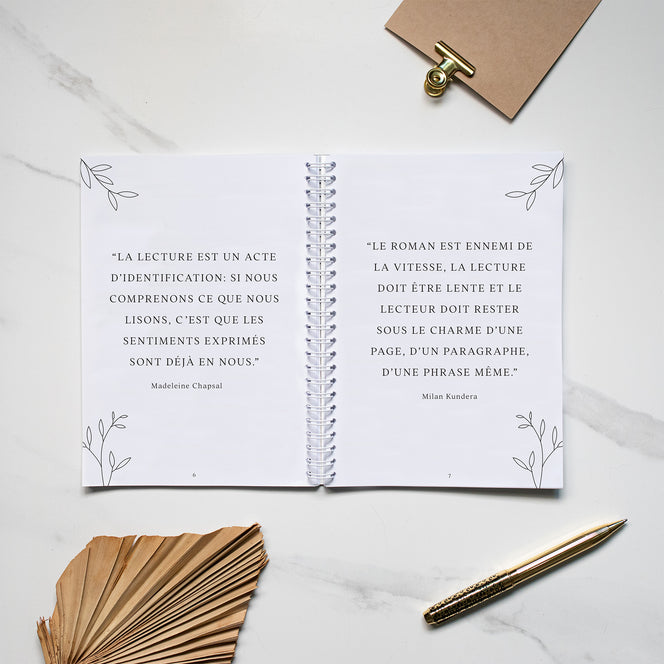 “LA LECTURE EST UN ACTE
D’IDENTIFICATION: SI NOUS
COMPRENONS CE QUE NOUS
LISONS, C’EST QUE LES
SENTIMENTS EXPRIMÉS
SONT DÉJÀ EN NOUS.”
Madeleine Chapsal
6
“LE ROMAN EST ENNEMI DE
LA VITESSE, LA LECTURE
DOIT ÊTRE LENTE ET LE
LECTEUR DOIT RESTER
SOUS LE CHARME D’UNE
PAGE, D’UN PARAGRAPHE,
D’UNE PHRASE MÊME.”
Milan Kundera
7